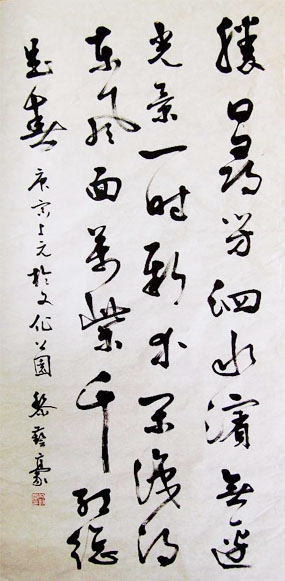 勝日尋芳泗水濱無邊
光景一時新等閒識得
東風面萬紫千紅總
是春 庚寅上元於文化公園 黎藝豪